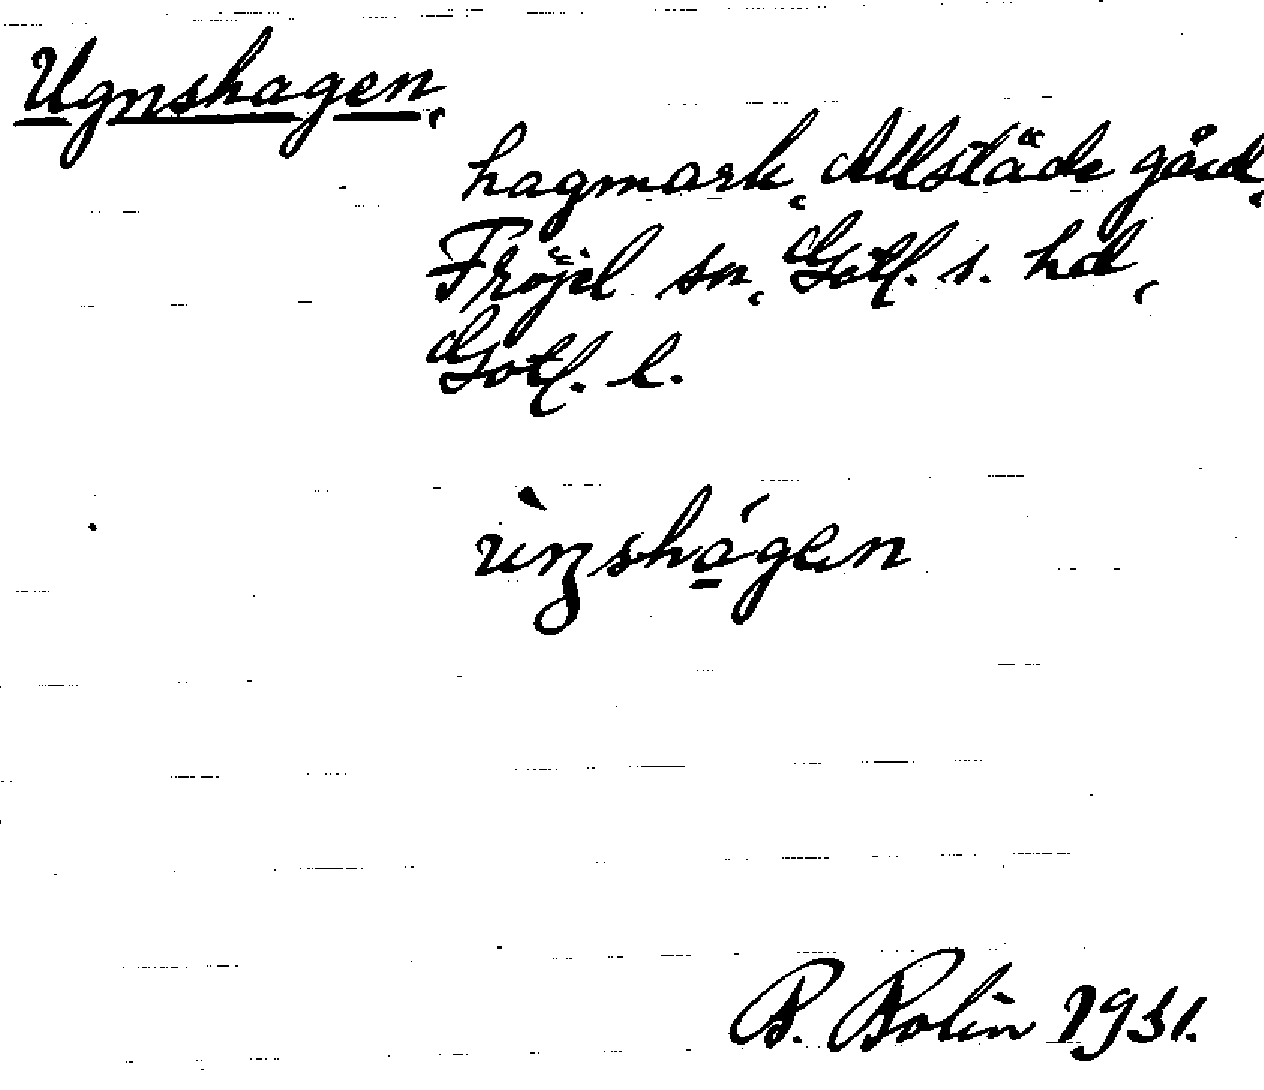 Ugnshagen,
hagmark, Allstäde gård,
Fröjel sn, Gotl. s. hd,
Gotl. l.
B. Bolin 1931.